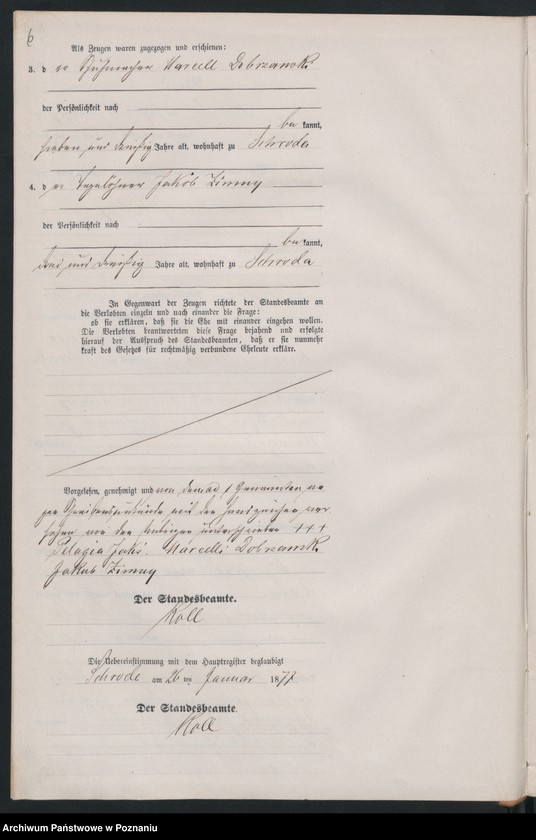 6
Als Zeugen waren zugezogen und erschienen:
3. der Schuhmacher Marcell Dobrzanski
der Persönlichkeit nach
be kannt,
sieben und dreißig Jahre alt, wohnhaft zu Schroda
4. der Tagelöhner Jakob Zimny
der Persönlichkeit nach
be kannt,
drei und dreißig Jahre alt, wohnhaft zu Schroda
In Gegenwart der Zeugen richtete der Standesbeamte an
die Verlobten einzeln und nach einander die Frage:
ob sie erklären, daß sie die Ehe mit einander eingehen wollen.
Die Verlobten beantworteten diese Frage bejahend und erfolgte
hierauf der Ausspruch des Standesbeamten, daß er sie nunmehr
kraft des Gesetzes für rechtmäßig verbundene Eheleute erkläre.
Vorgelesen, genehmigt und von dem ad 1 Genannten we
gen Schreibensunkunde mit dem Handzeichen ver
sehen von den übrigen unterschrieben +++
Pelagia Marcelli Dobrzanski
Jakob Zimny
Der Standesbeamte.
Koll
Die Uebereinstimmung mit dem Hauptregister beglaubigt
Schroda am 26 ten Januar 1877
Der Standesbeamte.
Koll
Archiwum Państwowe w Poznaniu